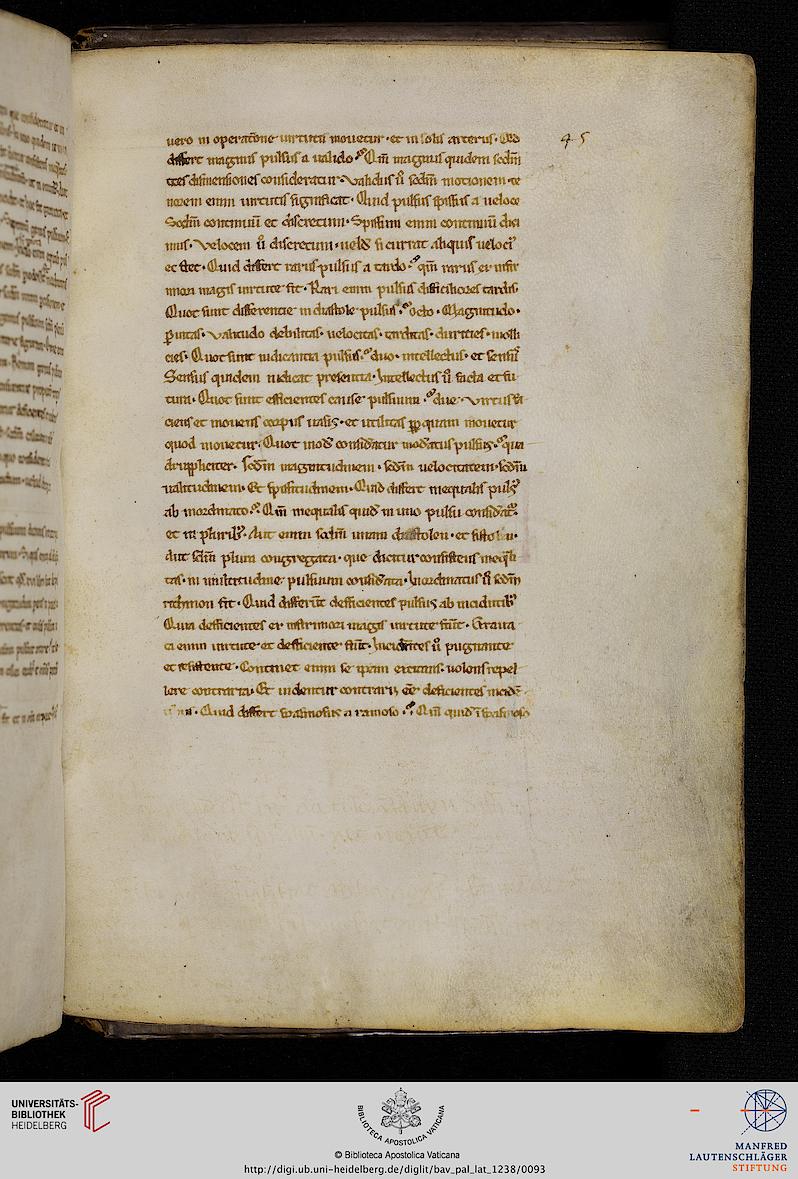 45
uero in operatōne uirtutū mouetur · et in solis arteriis · Qd
differt magnus pulsus a ualido · Qm̄ magnus quidem scdm̄
tres dimensiones consideratur · Validus ū scdm̄ motionem · te
norem enim uirtutis significat · Quid pulsus spissus a ueloce
Scdm̄ continuū et discretum · Spissum enim continuū dici
mus · Velocem ū discretum · si currat aliquis
Quid differt rarus pulsus a tardo · qm̄ rarus ex infir
miori magis uirtute fit · Rari enim pulsus difficiliores tardis
Quot sunt differentie in diastole pulsus · octo · Magnitudo ·
puitas · Valitudo debilitas · uelocitas · tarditas · durities · molli
cies · Quot sunt iudicantia pulsus · duo · intellectus · et sensus
Sensus quidem iudicat presentia · Intellectus ū facta et fu
tura · Quot sunt efficientes cause pulsuum · due · Virtus
ciens et mouens corpus uasis · et utilitas ꝓpt quam mouetur
quod mouetur · Quot mod considatur modatus pulsus · qua
drupliciter · scdm̄ magnitudinem · scdm̄ uelocitatem · scdm̄
ualitudinem · Et spissitudinem · Quid differt inequalis puls
ab inordinato · Qm̄ inequalis quid in uno pulsu considat
et in plurib · Aut enim scdm̄ unam diastolen · et sistolen ·
Aut scdm̄ plura congregata · que dicitur consistens ineqli
tas · in multitudine pulsuum considata · Inordinatus ū scdm̄
rithmon fit · Quid differūt defficientes pulsus ab incidētib
Quia defficientes ex infirmiori magis uirtute fiūt · Graua
ta enim uirtute et defficiente fiūt · Incidentes ū pugnante
et resistente · Continet enim se ipsam excitans · uolens repel
lere contraria · Et uidentur contrarii eē deficientes incidē
Quid differt spasmosus a ramoso · Qm̄ quid ī spasmoso
UNIVERSITÄTS-
BIBLIOTHEK
HEIDELBERG
BIBLIOTECA APOSTOLICA VATICANA
© Biblioteca Apostolica Vaticana
http://digi.ub.uni-heidelberg.de/diglit/bav_pal_lat_1238/0093
MANFRED
LAUTENSCHLÄGER
STIFTUNG